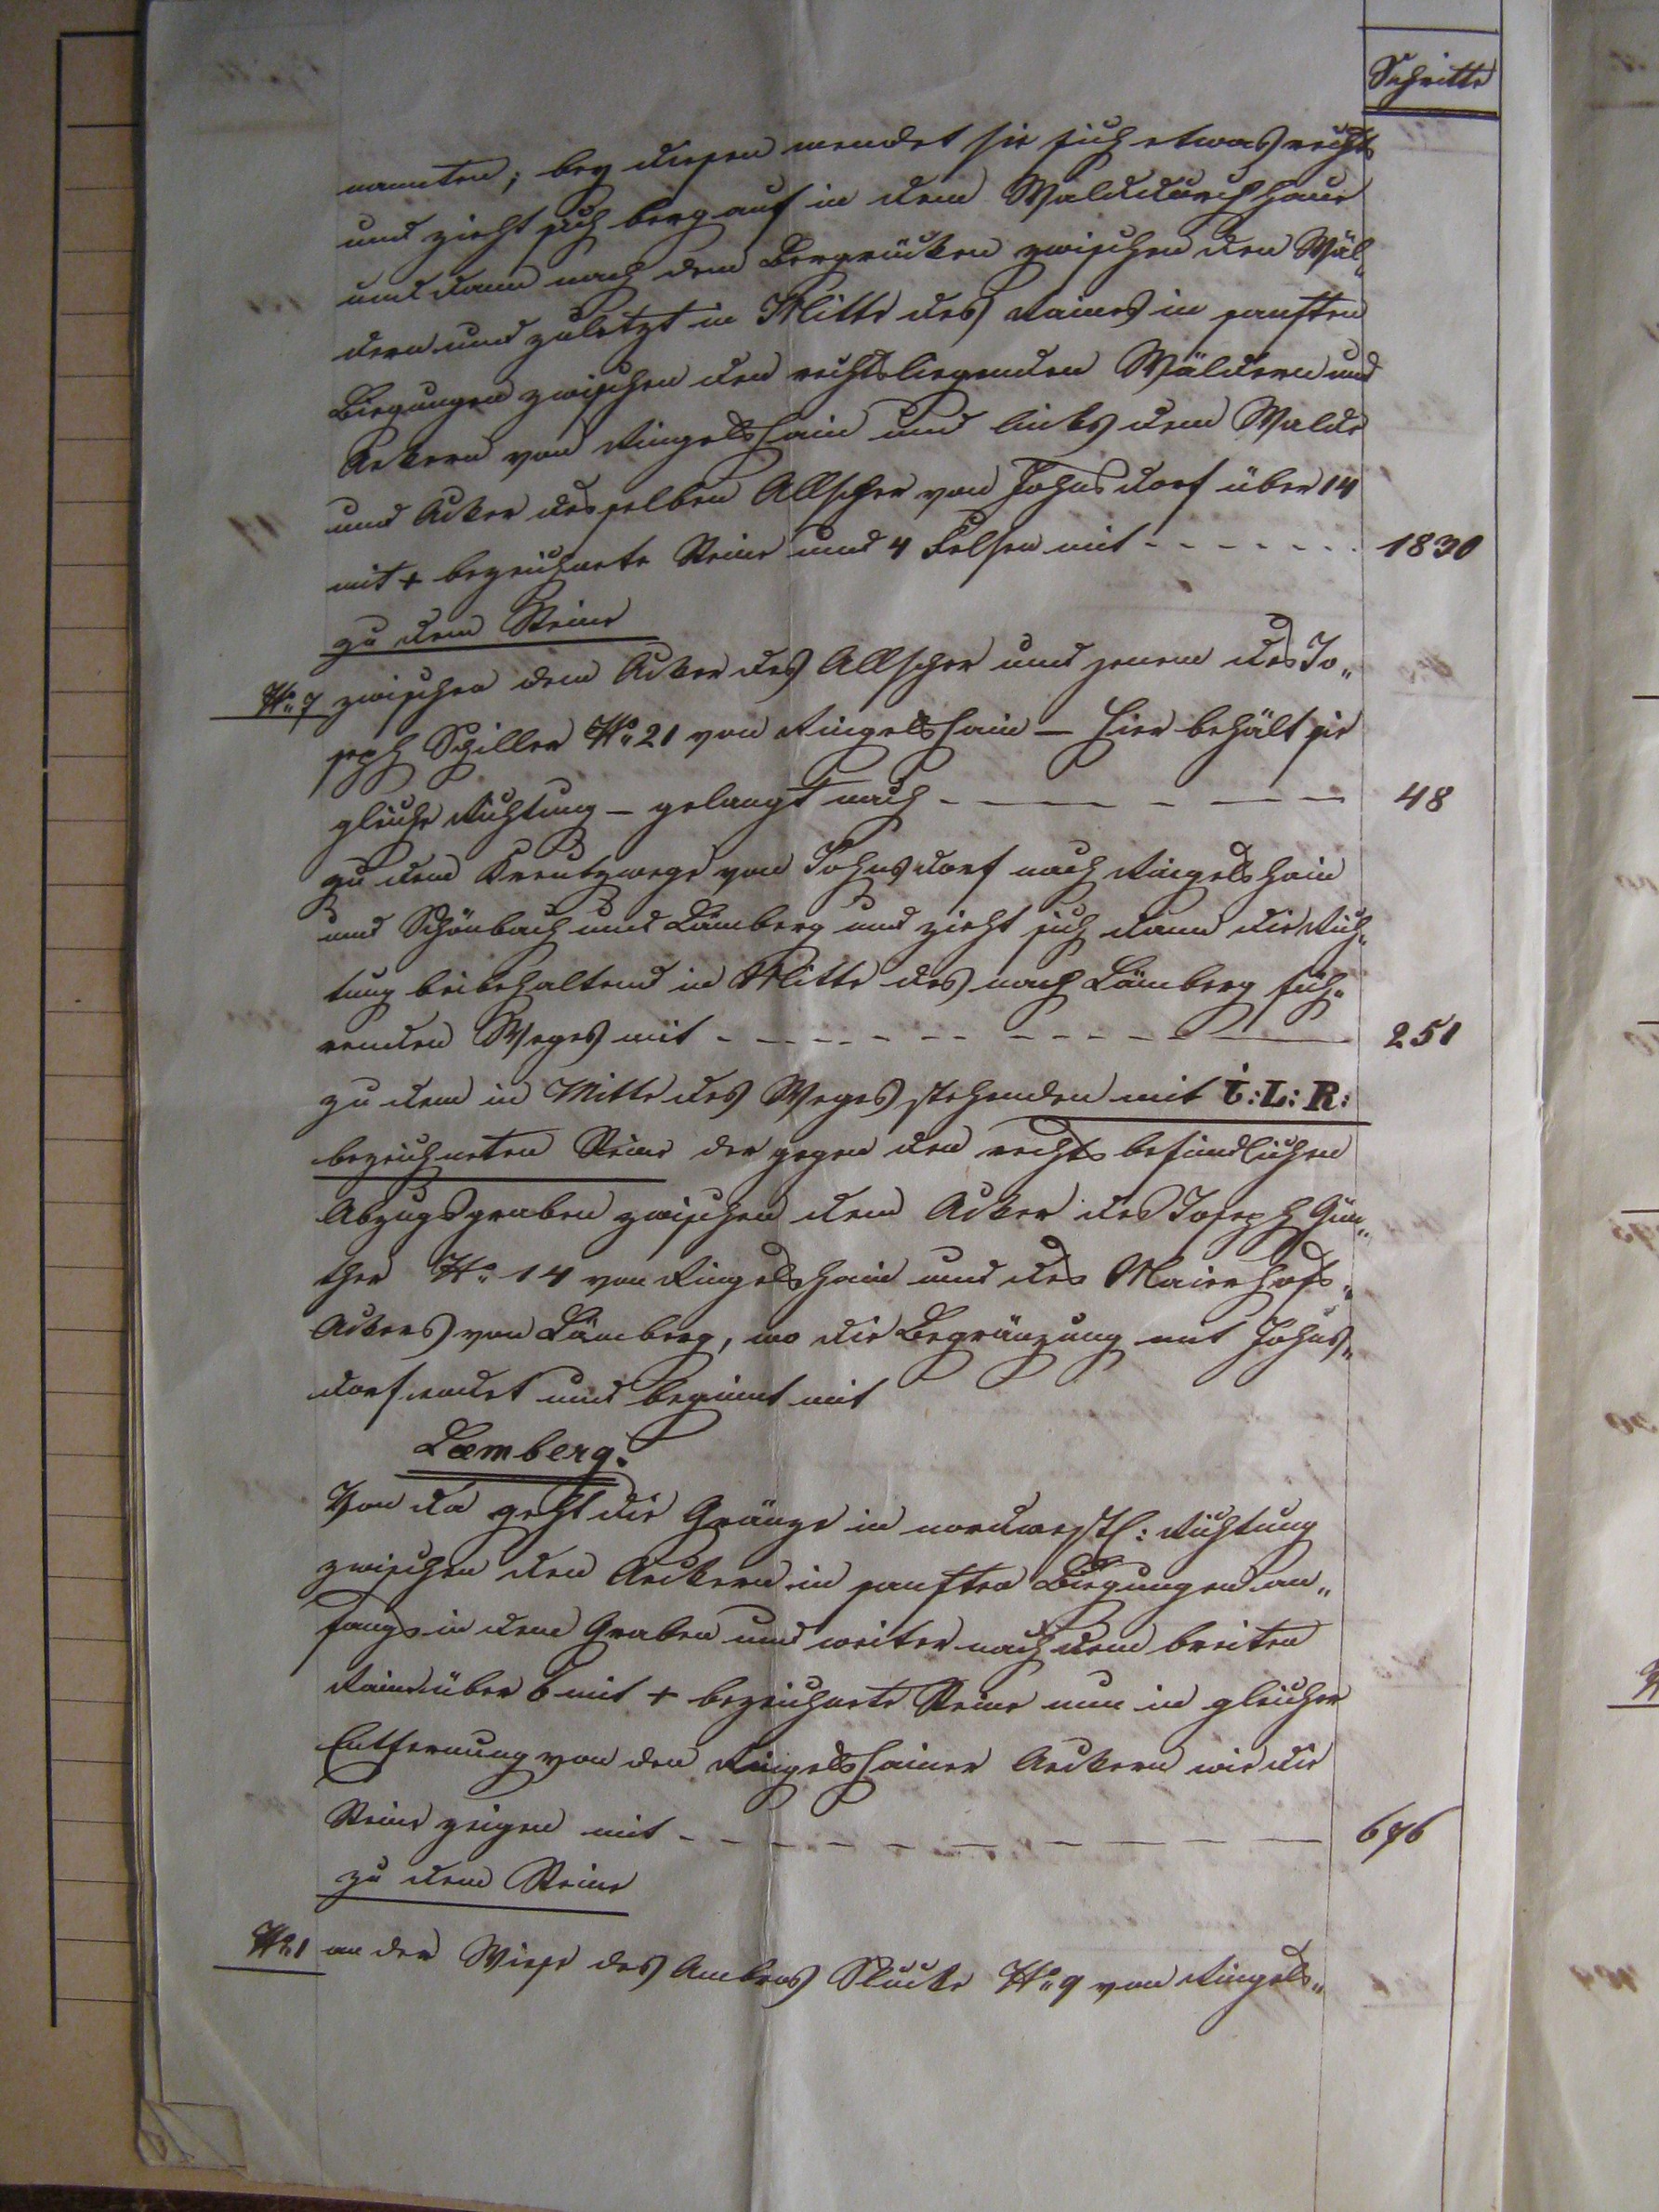 Schritte
nannten; bey diesen wendet sie sich etwas rechts
und zieht sich bergauf in dem Walddurchhaue
und dann nach dem Bergrücken zwischen den Wäl„
dern und zuletzt in Mitte des Raines in sanften
Biegungen zwischen den rechtsliegenden Wäldern und
Aekern von Ringelshain und links dem Walde
und Acker desselben Allscher von Johnsdorf über 14
mit + bezeichnete Steine und 4 Felsen mit - - - - - - - 1830
zu dem Steine
No. 7 zwischen dem Acker des Allscher und jenem des Jo„
seph Schiller No. 21 von Ringelshain — hier behält sie
gleiche Richtung — gelangt nach - - - - - - - 48
zu dem Kreutzwege von Johnsdorf nach Ringelshain
und Schönbach und Lämberg und zieht sich dann die Rich„
tung beibehaltend in Mitte des nach Lämberg füh„
renden Weges mit - - - - - - - - - - - 251
zu dem in Mitte des Weges stehenden mit I: L: R:
bezeichneten Steine der gegen den rechts befindlichen
Abzugsgraben zwischen dem Acker des Joseph Gün„
ther No. 14 von Ringelshain und des Maierhofs„
Ackers von Lämberg, wo die Begränzung mit Johns„
dorf endet und beginnt mit
Læmberg.
Von da geht die Gränze in nordwestl: Richtung
zwischen den Aeckern in sanften Biegungen an„
fangs in dem Graben und weiter nach dem breiten
Raine über 6 mit + bezeichnete Steine nun in gleicher
Entfernung von den Ringelshainer Aeckern wie die
Steine zeigen mit - - - - - - - - - - - 676
zu dem Steine
No. 1 an der Wiese des Ambros No. 9 von Ringels„